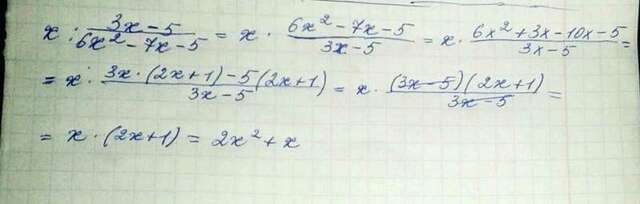 x : (3x-5)/(6x²-7x-5) = x · (6x²-7x-5)/(3x-5) = x · (6x²+3x-10x-5)/(3x-5) =
= x · (3x·(2x+1)-5(2x+1))/(3x-5) = x · ((3x-5)(2x+1))/(3x-5) =
= x · (2x+1) = 2x²+x